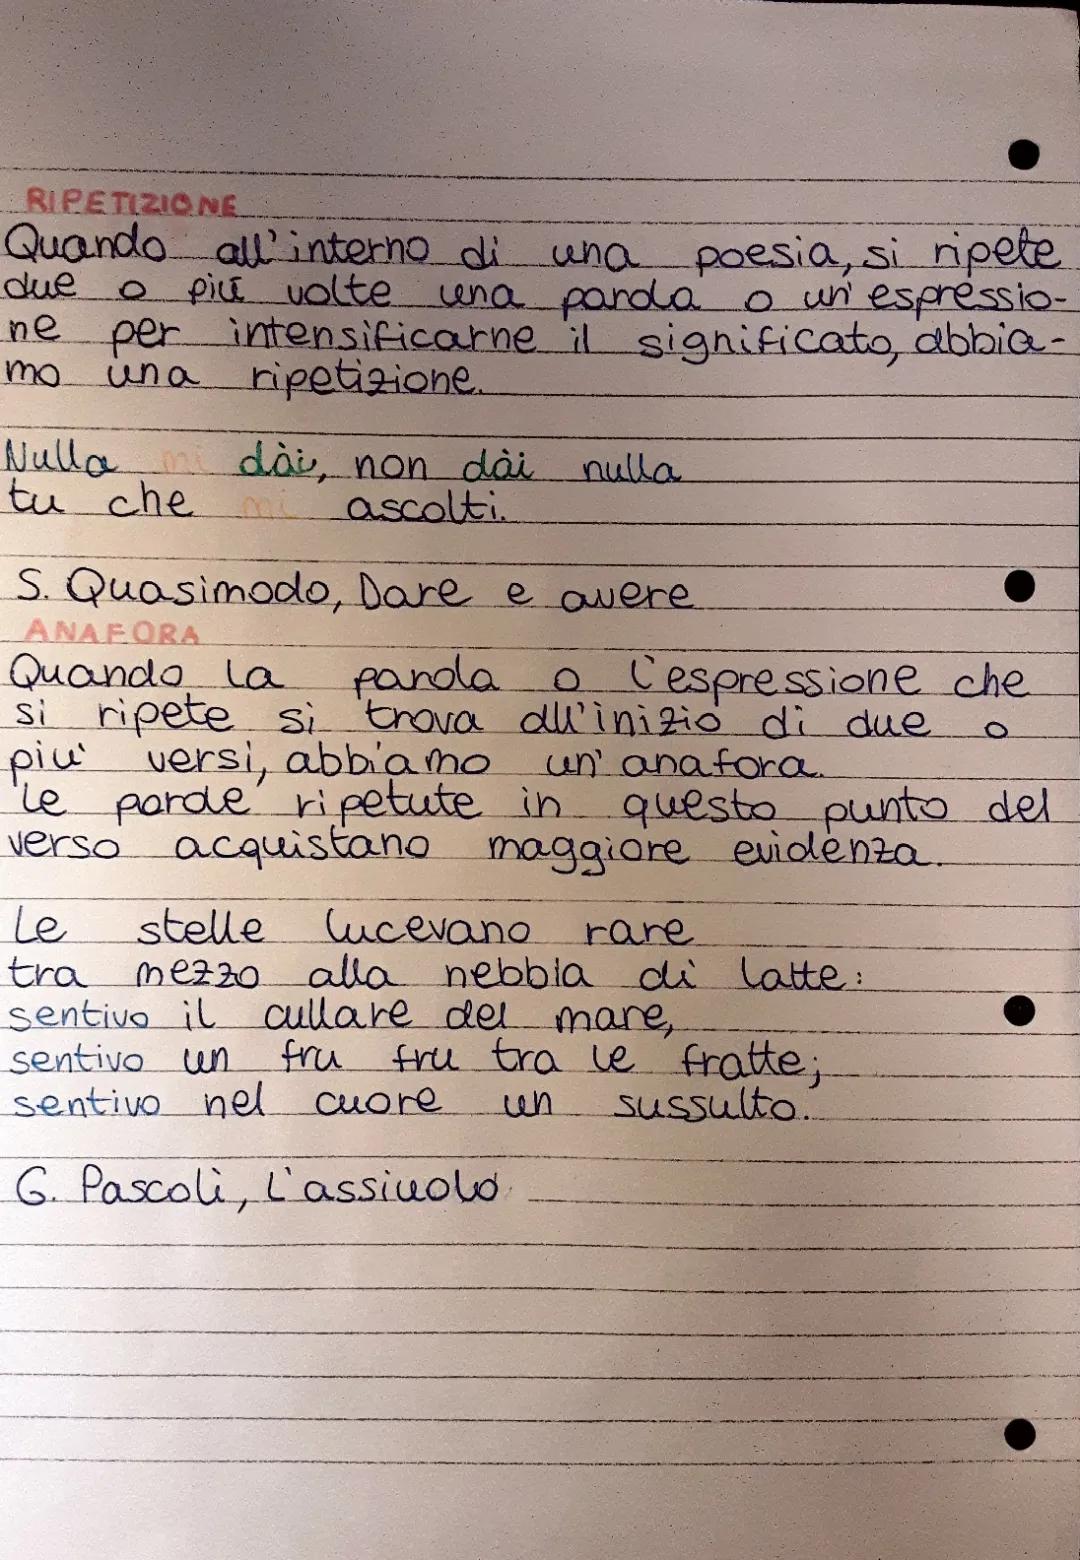 RIPETIZIONE
Quando all'interno di una poesia, si ripete
due o più volte una parola o un'espressio-
ne per intensificarne il significato, abbia-
mo una ripetizione.
Nulla mi dài, non dài nulla
tu che mi ascolti.
S. Quasimodo, Dare e avere
ANAFORA
Quando la parola o l'espressione che
si ripete si trova all'inizio di due o
piu' versi, abbiamo un'anafora.
Le parole ripetute in questo punto del
verso acquistano maggiore evidenza.
Le stelle lucevano rare
tra mezzo alla nebbia di latte:
sentivo il cullare del mare,
sentivo un fru fru tra le fratte;
sentivo nel cuore un sussulto.
G. Pascoli, L'assiuolo